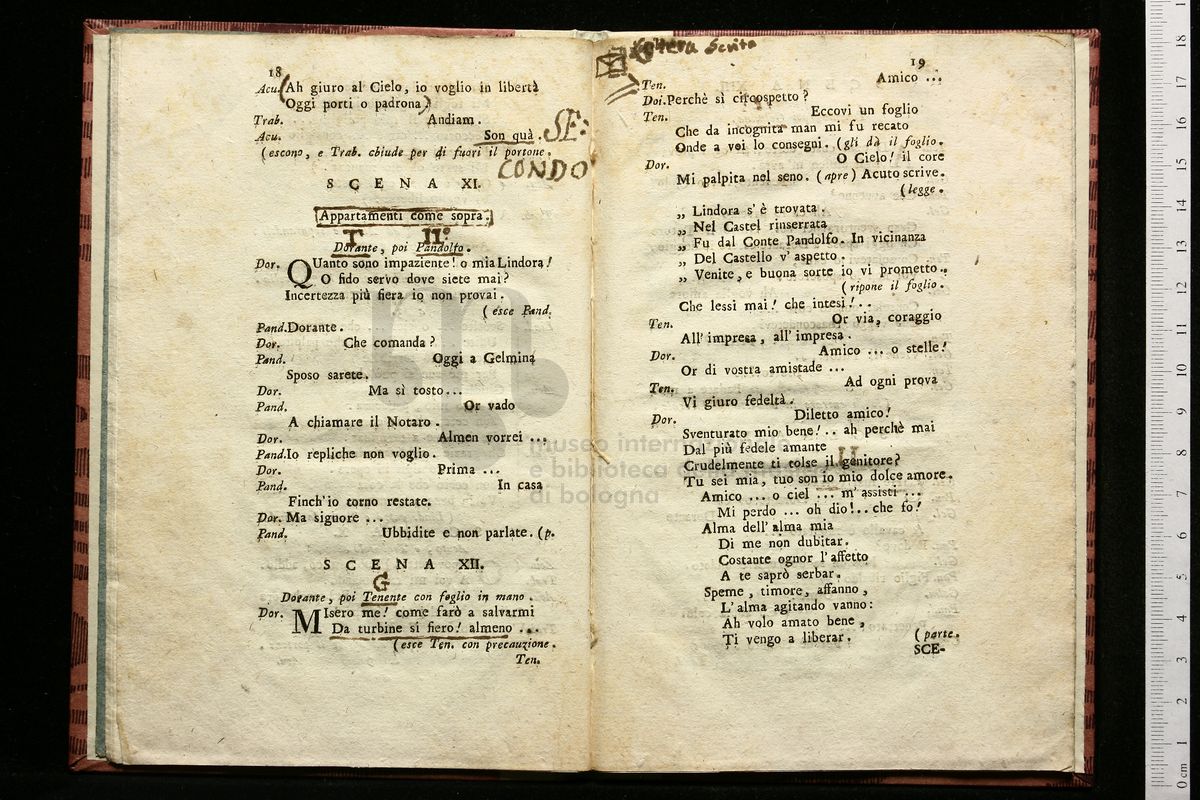 18
Acu. (Ah giuro al Cielo, io voglio in libertà
Oggi porti o padrona.)
Trab. Andiam.
Acu. Son quà.
SE:
(escono, e Trab. chiude per di fuori il portone.
CONDO
SCENA XI.
Appartamenti come sopra.
T II°
Dorante, poi Pandolfo.
Dor. QUanto sono impaziente! o mia Lindora!
O fido servo dove siete mai?
Incertezza più fiera io non provai.
(esce Pand.
Pand. Dorante.
Dor. Che comanda?
Pand. Oggi a Gelmina
Sposo sarete.
Dor. Ma sì tosto...
Pand. Or vado
A chiamare il Notaro.
Dor. Almen vorrei ...
Pand. Io repliche non voglio.
Dor. Prima ...
Pand. In casa
Finch'io torno restate.
Dor. Ma signore ...
Pand. Ubbidite e non parlate. (p.
SCENA XII.
G
Dorante, poi Tenente con foglio in mano.
Dor. MIsero me! come farò a salvarmi
Da turbine sì fiero! almeno ...
(esce Ten. con precauzione.
Ten.
scrita
19
Ten. Amico ...
Doi. Perchè sì circospetto?
Ten. Eccovi un foglio
Che da incognita man mi fu recato
Onde a voi lo consegni. (gli dà il foglio.
Dor. O Cielo! il core
Mi palpita nel seno. (apre) Acuto scrive.
(legge.
„ Lindora s'è trovata.
„ Nel Castel rinserrata
„ Fu dal Conte Pandolfo. In vicinanza
„ Del Castello v'aspetto.
„ Venite, e buona sorte io vi prometto..
(ripone il foglio.
Che lessi mai! che intesi!..
Ten. Or via, coraggio
All'impresa, all'impresa.
Dor. Amico ... o stelle!
Or di vostra amistade ...
Ten. Ad ogni prova
Vi giuro fedeltà.
Dor. Diletto amico!
Sventurato mio bene!.. ah perchè mai
Dal più fedele amante
U
Crudelmente ti tolse il genitore?
Tu sei mia, tuo son io mio dolce amore.
Amico ... o ciel ... m'assisti ...
Mi perdo ... oh dio!.. che fo!
Alma dell'alma mia
Di me non dubitar.
Costante ognor l'affetto
A te saprò serbar.
Speme, timore, affanno,
L'alma agitando vanno:
Ah volo amato bene,
Ti vengo a liberar. (parte.
SCE-
museo internazionale
e biblioteca della musica
di bologna
0 cm 1 2 3 4 5 6 7 8 9 10 11 12 13 14 15 16 17 18